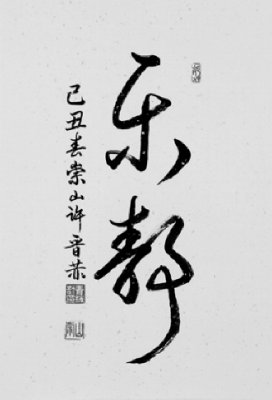 乐静
己丑春崇山许晋荣